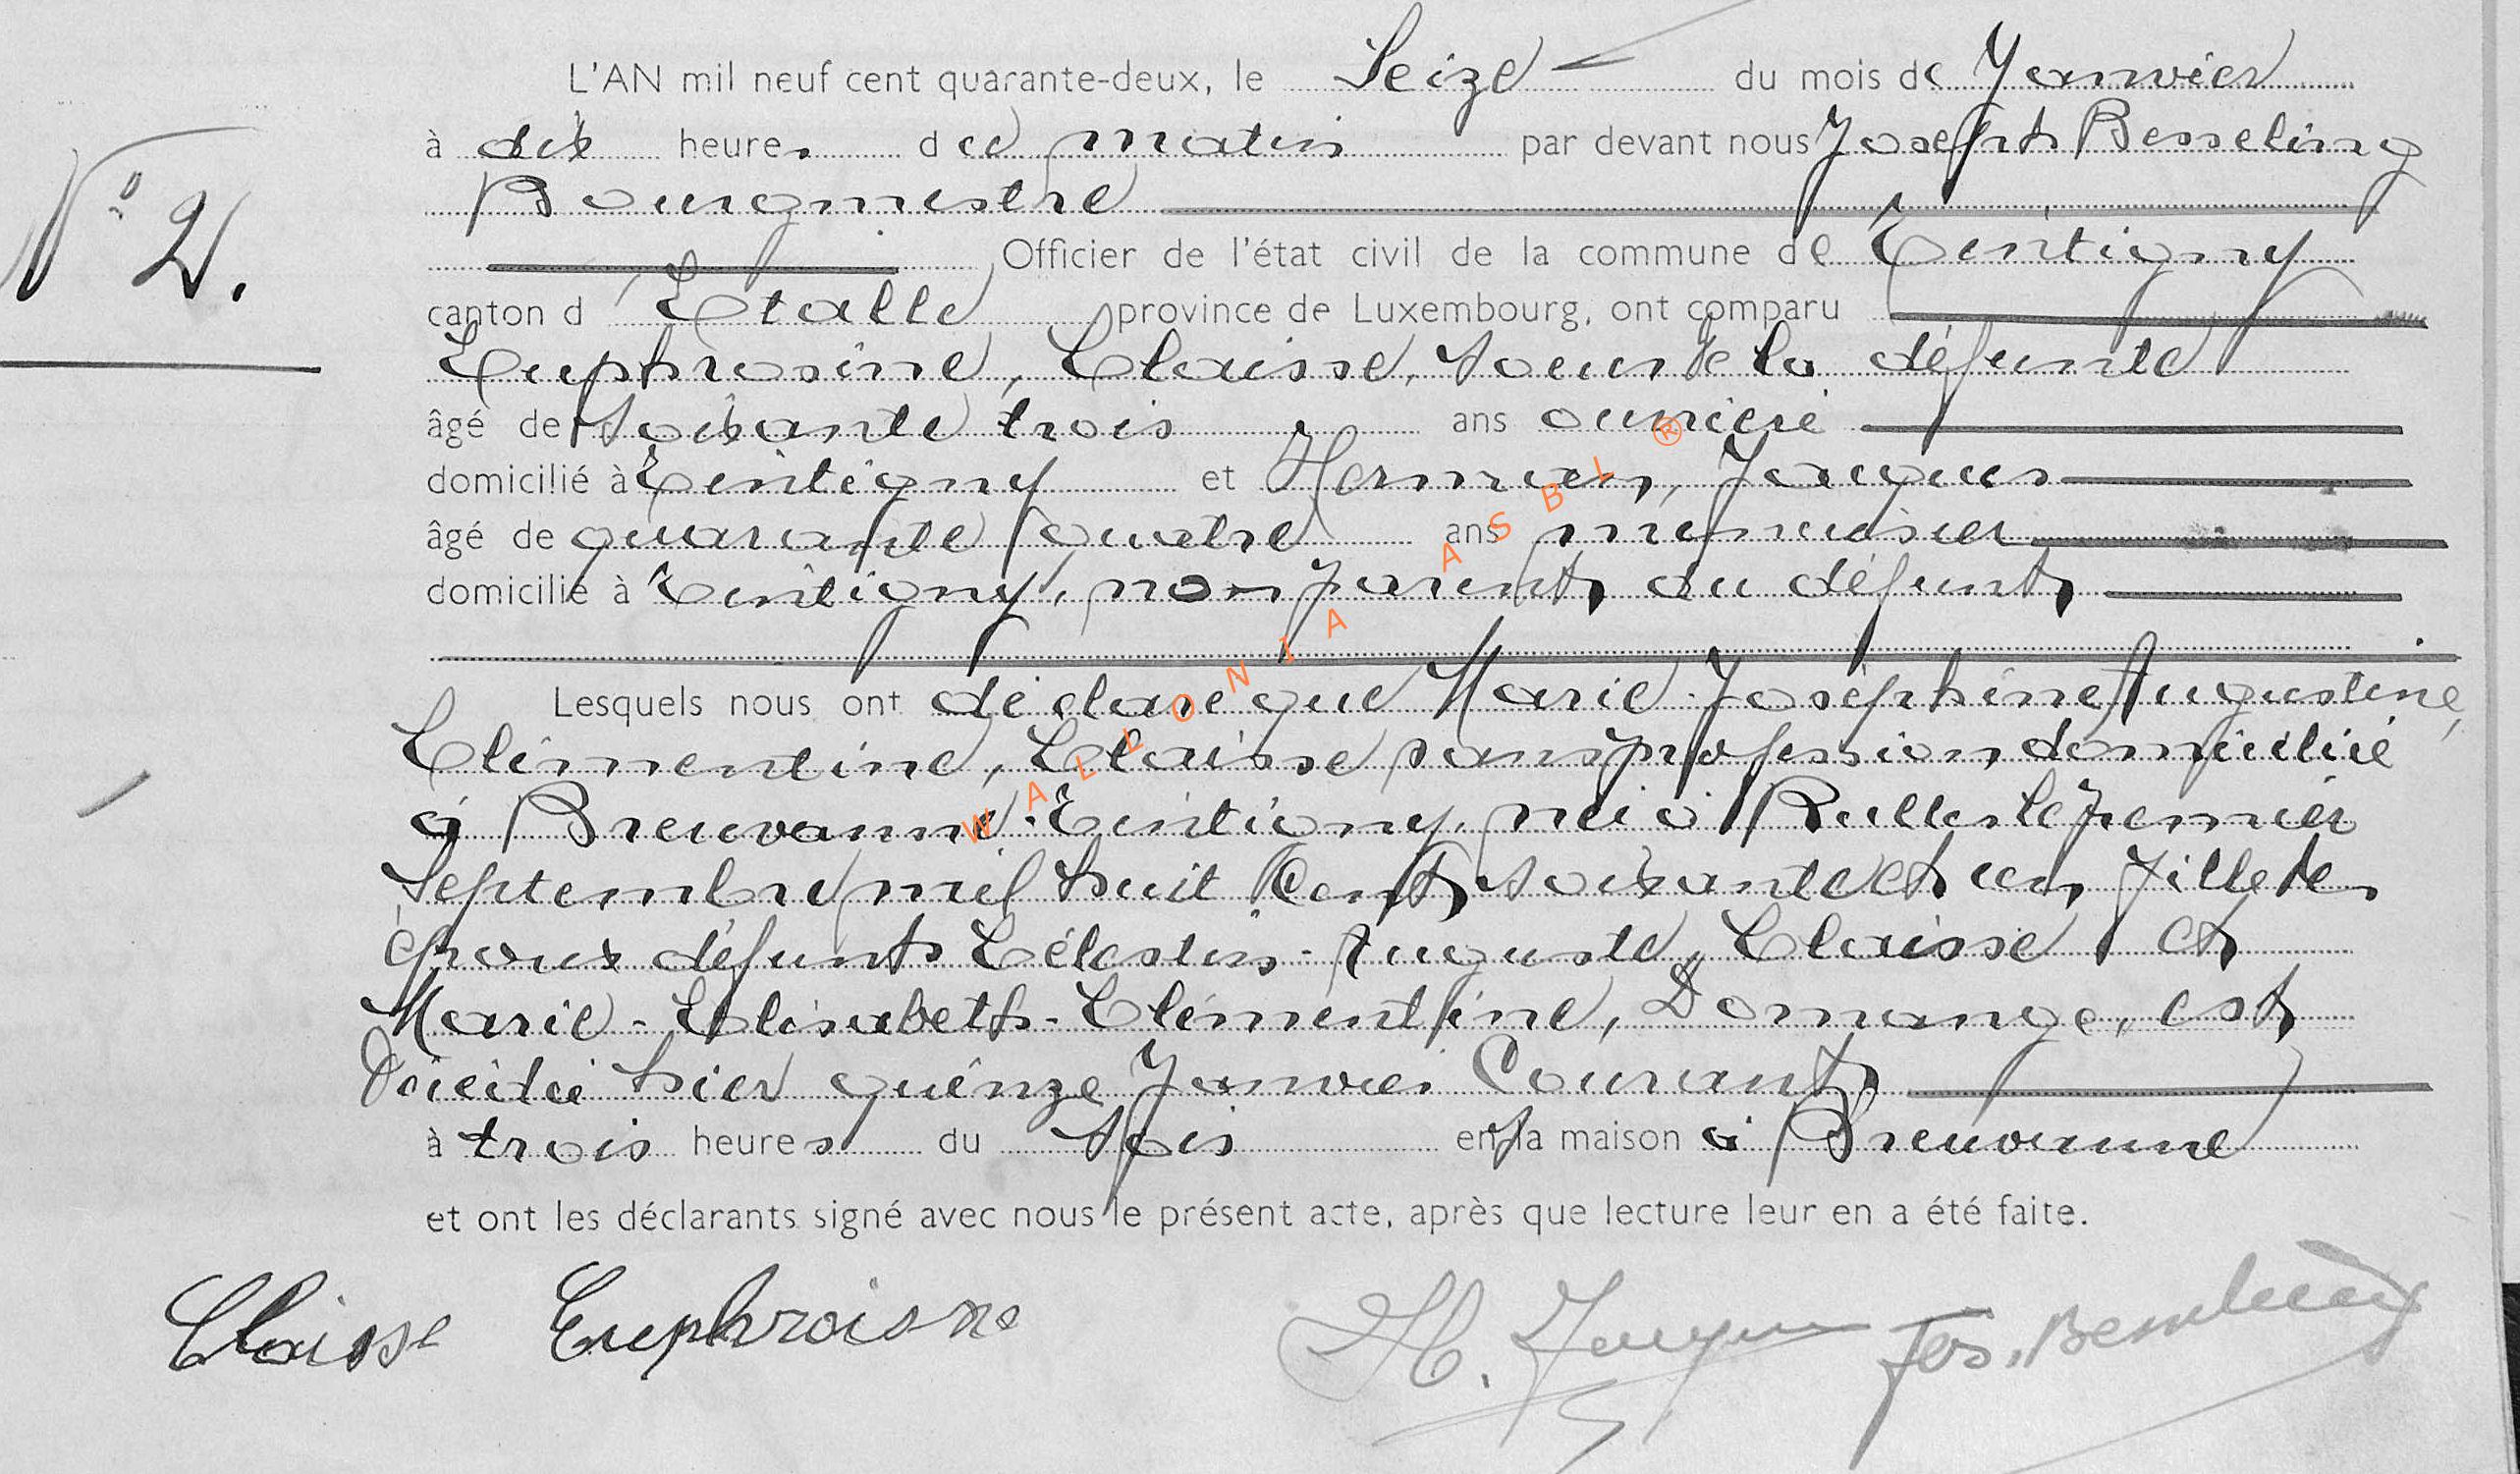 L'AN mil neuf cent quarante-deux, le Seize du mois de Janvier
à dix heures du matin par devant nous Joseph Besseling
Bourgmestre
N° 2.
Officier de l'état civil de la commune de Tintigny
canton d'Etalle province de Luxembourg, ont comparu
Euphrosine, Claisse, soeur de la défunte
âgé de soixante trois ans ouvrière
domicilié à Tintigny et Herman, Jacques
âgé de quarante quatre ans menuisier
domicilié à Tintigny, non parent du défunt
Lesquels nous ont déclaré que Marie-Joséphine Augustine,
Clémentine, Claisse sans profession domiciliée
à Breuvanne-Tintigny, née à Rulles le premier
Septembre mil huit Cent soixante et un, fille de,
époux défunts Célestin-Auguste, Claisse et
Marie-Elisabeth-Clémentine, Domange, est
Décédée hier quinze Janvier Courant
à trois heures du soir en la maison à Breuvanne
et ont les déclarants signé avec nous le présent acte, après que lecture leur en a été faite.
Claisse Euphroisne H. Jacques Jos. Besseling
WALLONIA ASBL ®